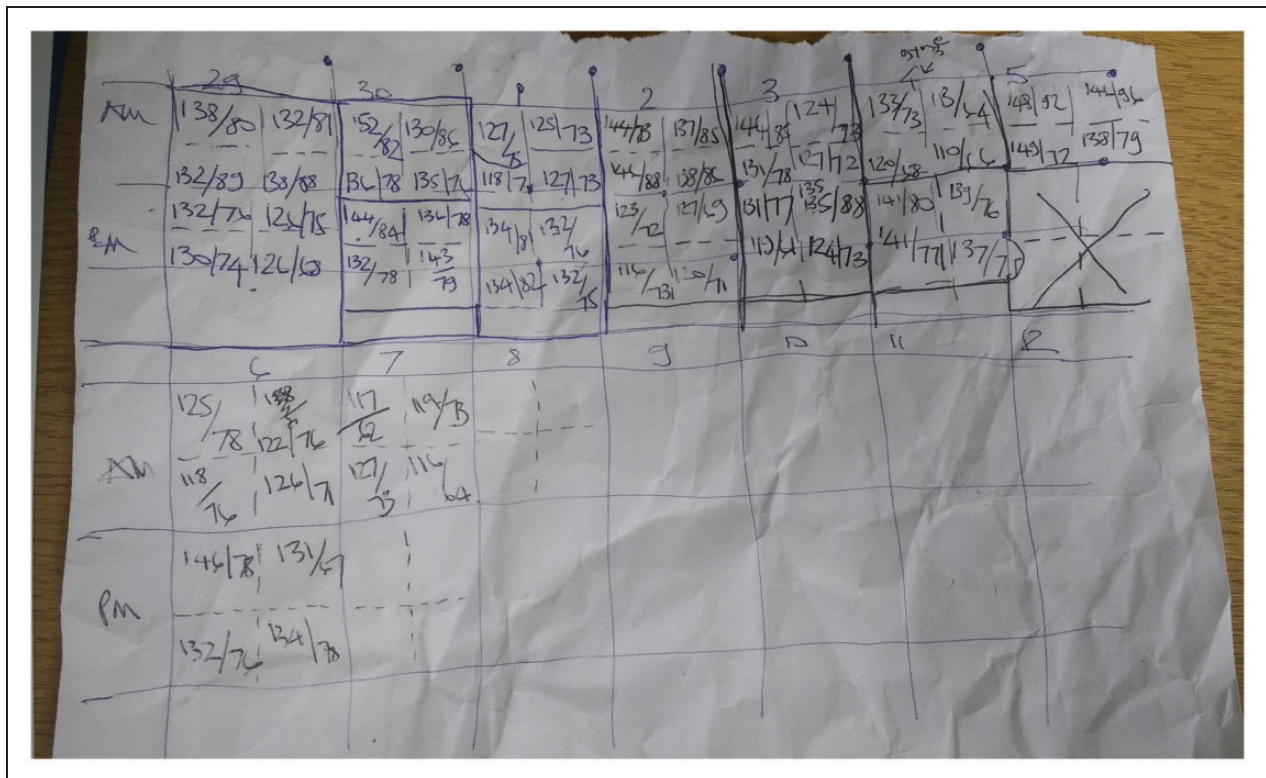 29 30 1 2 3 5
AM 138/80 132/81 152/82 130/86 127/75 125/73 144/78 137/85 144/85 124/73 133/73 131/64 148/92 144/96
132/89 138/88 136/78 135/76 118/7 127/73 145/88 138/86 131/78 127/72 120/68 110/66 149/72 138/79
PM 132/76 126/75 144/84 136/78 134/81 132/76 123/72 127/69 131/77 135/88 141/80 139/76
130/74 126/68 132/78 143/79 134/82 132/75 116/73 120/71 124/73 141/77 137/75
6 7 8 9 10 11 12
125/78 122/76 117/62 119/73
AM 118/76 126/71 127/73 116/64
146/78 131/67
PM
132/76 134/78